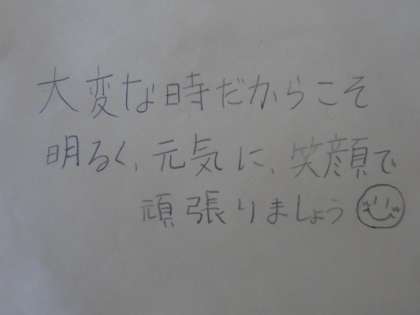 大変な時だからこそ
明るく、元気に、笑顔で
頑張りましょう